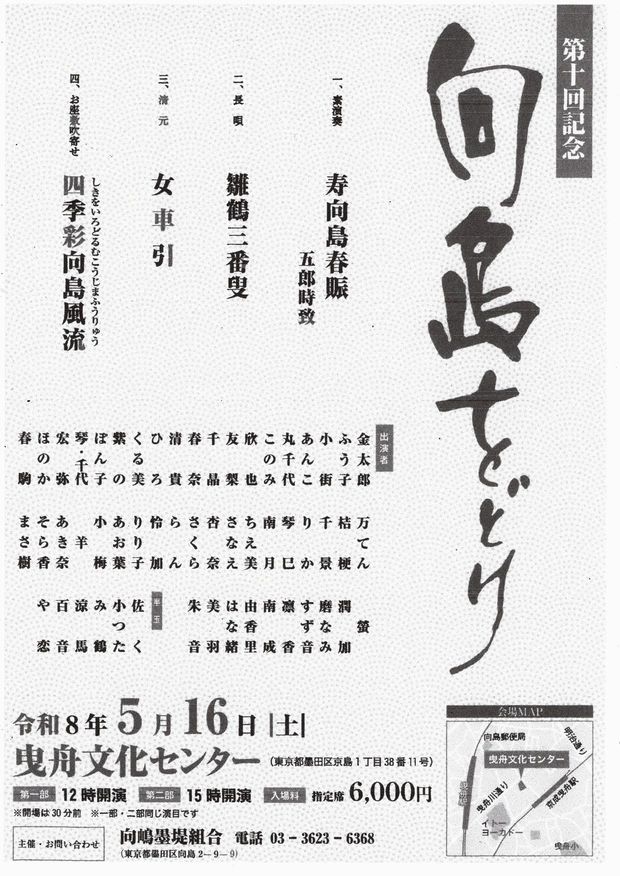 第十回記念
向島をどり
一、素演奏
寿向島春賑
五郎時致
二、長唄
雛鶴三番叟
三、清元
女車引
四、お座敷吹寄せ
しきをいろどるむこうじまふうりゅう
四季彩向島風流
出演者
金太郎
ふう子
小街
あんこ
丸千代
このみ
欣也
友梨
千晶
春奈
清貴
ひろ
くるみ
紫の
ぽん子
琴・千代
宏弥
ほのか
春駒
万てん
桔梗
千景
りか
琴巳
南月
ちえ美
さなえ
杏奈
さくら
らん
怜加
りり子
あおり葉
小梅
羊
あき奈
そら香
まさ樹
螢
潤加
磨なみ
すず音
凛香
南成
由香里
はな緒
美羽
朱音
半玉
佐く
小つた
み鶴
涼馬
百音
や恋
令和8年5月16日|土|
曳舟文化センター（東京都墨田区京島1丁目38番11号）
第一部 12時開演 第二部 15時開演 入場料 指定席 6,000円
※開場は30分前 ※一部・二部同じ演目です
主催・お問い合わせ
向嶋墨堤組合 電話 03-3623-6368
（東京都墨田区向島2-9-9）
会場MAP
向島郵便局
明治通り
曳舟文化センター
曳舟駅
曳舟川通り
京成曳舟駅
イトーヨーカドー
曳舟小